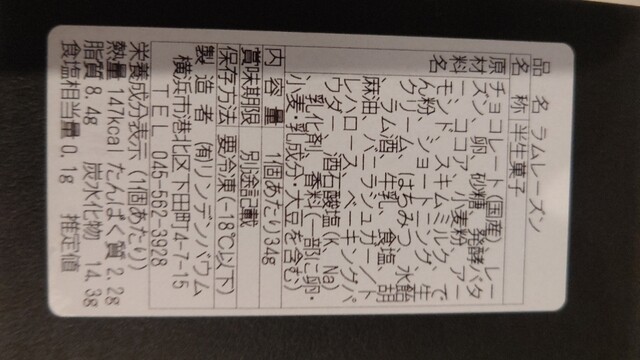 品名 ラムレーズン
名称 半生菓子
原材料名 チョコレート(国産)、レー
ズン、卵、砂糖、発酵バタ
ー、ココア、小麦粉、アー
モンド、スキムミルク、で
ん粉、ショートニング、生
クリーム、はちみつ、水飴、
ラム酒、牛乳、食塩、胡
麻油、バニラシュガー/ト
レハロース、ベーキングパ
ウダー、酒石酸塩(K、Na)、
乳化剤、香料(一部に卵・
小麦・乳成分・大豆を含む)
内容量 1個あたり34g
賞味期限 別途記載
保存方法 要冷凍(-18℃以下)
製造者 ㈲リンデンバウム
横浜市港北区下田町4-7-15
TEL 045-562-3928
栄養成分表示(1個あたり)
熱量 147kcal たんぱく質 2.2g
脂質 8.4g 炭水化物 14.3g
食塩相当量 0.1g 推定値